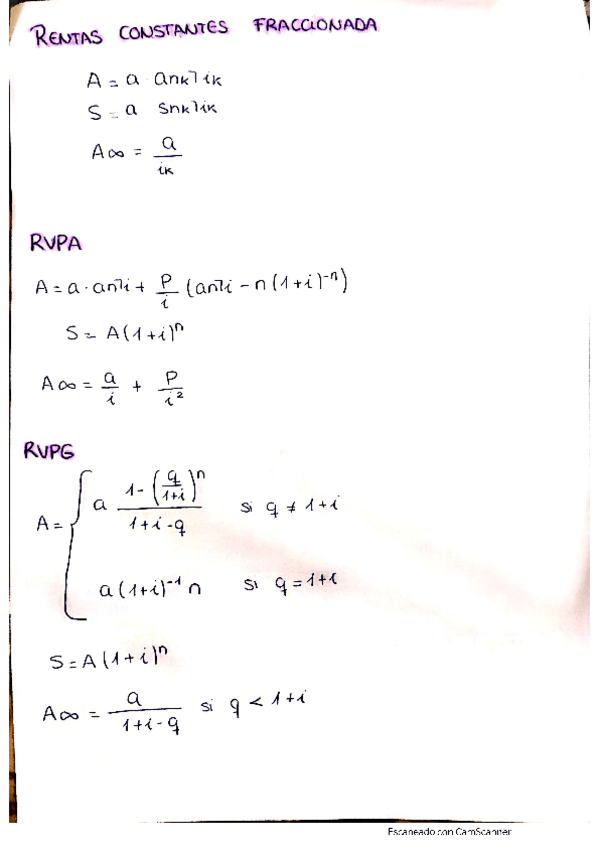 RENTAS CONSTANTES FRACCIONADA
A = a · ank⌉ik
S = a snk⌉ik
A∞ = a/ik
RVPA
A = a · an⌉i + P/i (an⌉i - n (1+i)^-n)
S = A(1+i)^n
A∞ = a/i + P/i²
RVPG
A = { a (1-(q/1+i)^n)/(1+i-q) si q ≠ 1+i
a(1+i)^-1 n si q = 1+i
S = A(1+i)^n
A∞ = a/(1+i-q) si q < 1+i
Escaneado con CamScanner